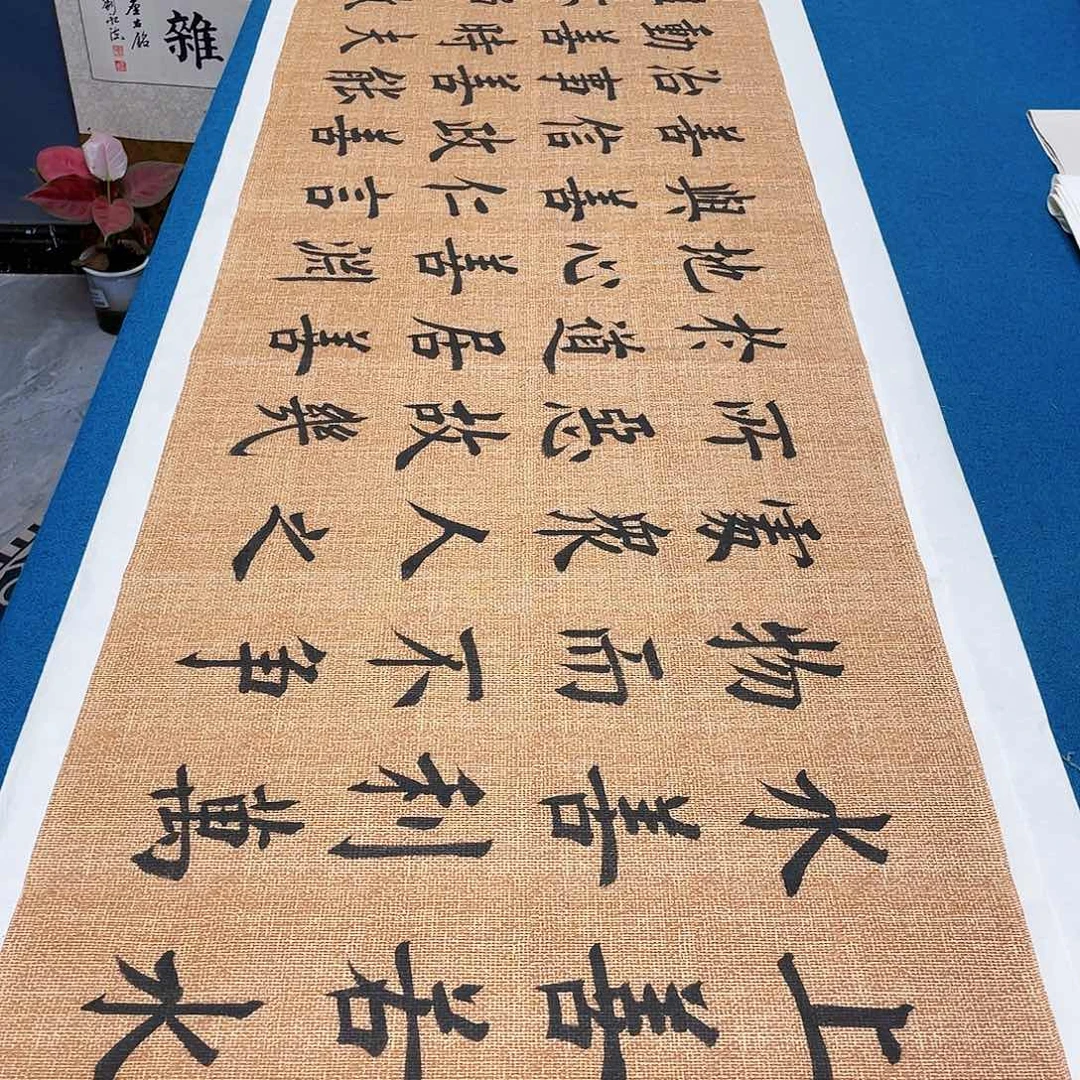 上善若水
水善利萬
物而不争
處衆人之
所惡故幾
於道居善
地心善淵
與善仁言
善信政善
治事善能
動善時夫
雜